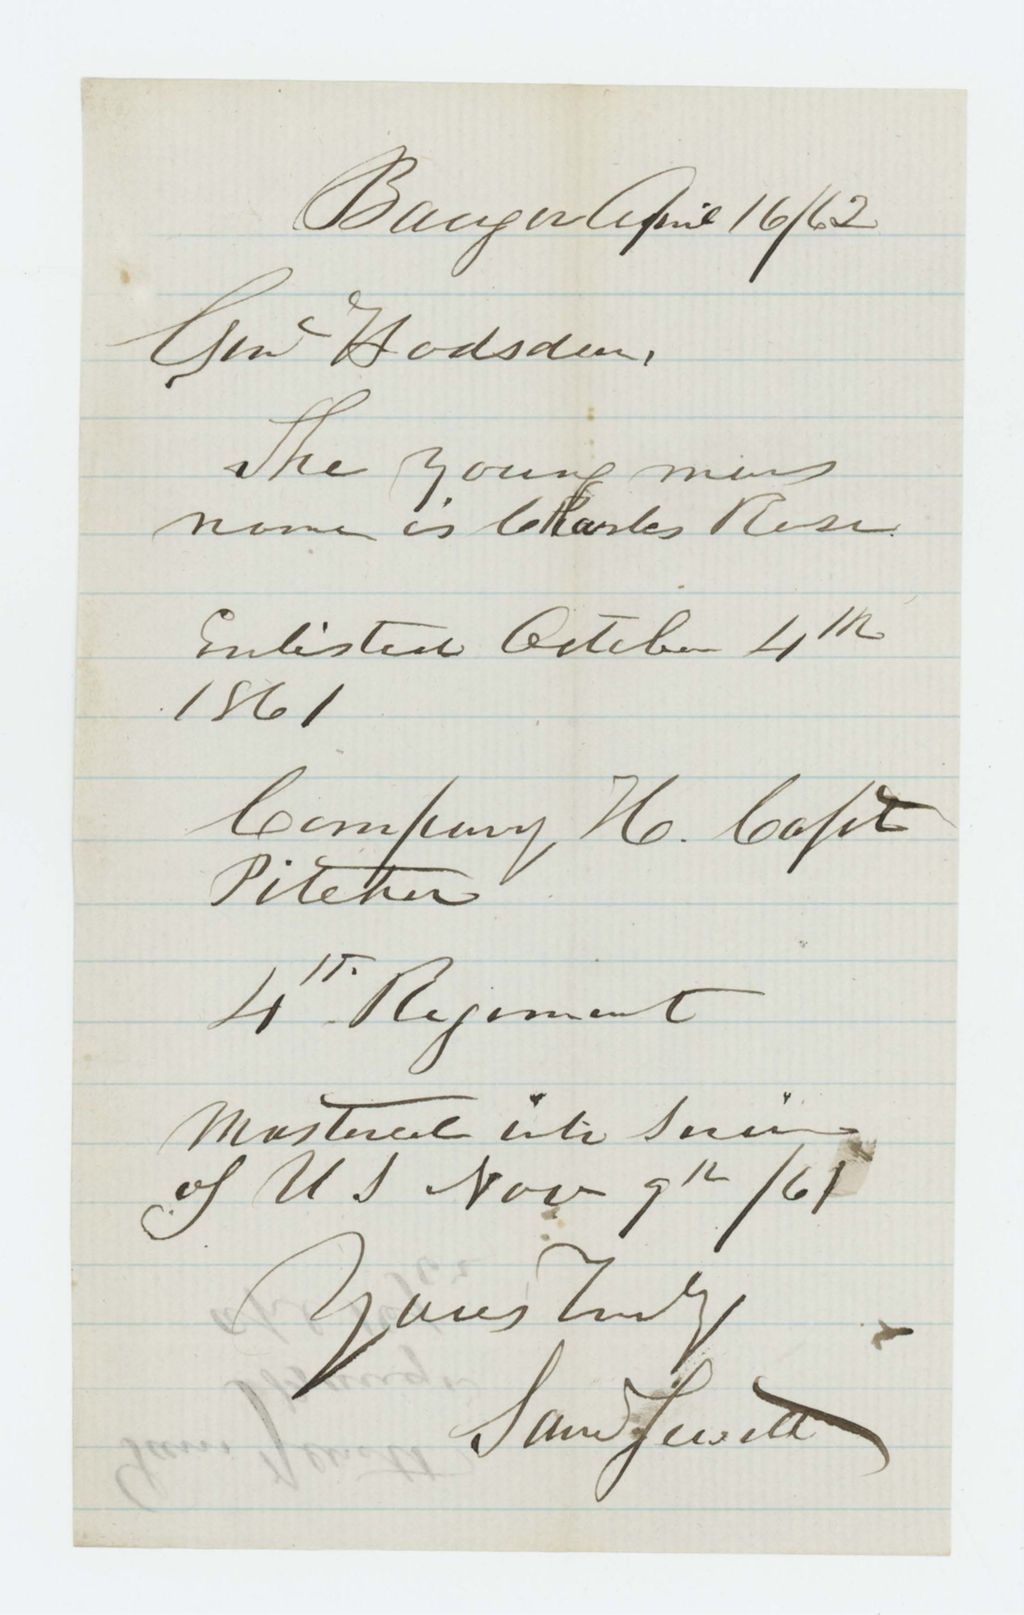 Bangor April 16/62
Genl Hodsdon,
The young mans
name is Charles Rose.
Enlisted October 4th
1861
Company H. Capt
Pitcher
4th Regiment
Mustered into Service
of U S Nov 9th /61
Yours Truly
Saml Jewett